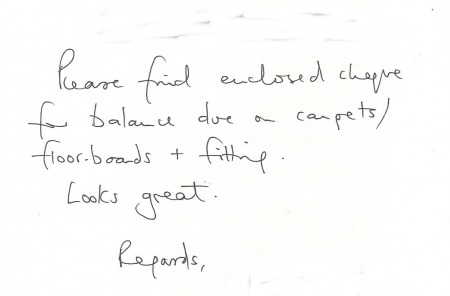 Please find enclosed cheque
for balance due on carpets/
floor-boards + fitting.
Looks great.
Regards,